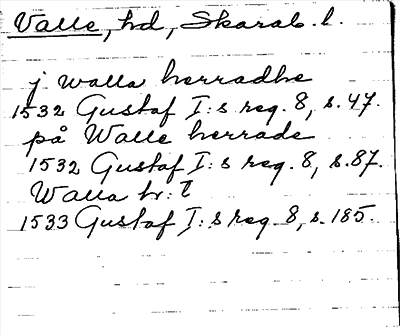 Valle, hd, Skarab. l.
j walla herradhe
1532 Gustaf I:s reg. 8, s. 47.
på Walle herrade
1532 Gustaf I:s reg. 8, s. 87.
Walla hr: t
1533 Gustaf I:s reg. 8, s. 185.